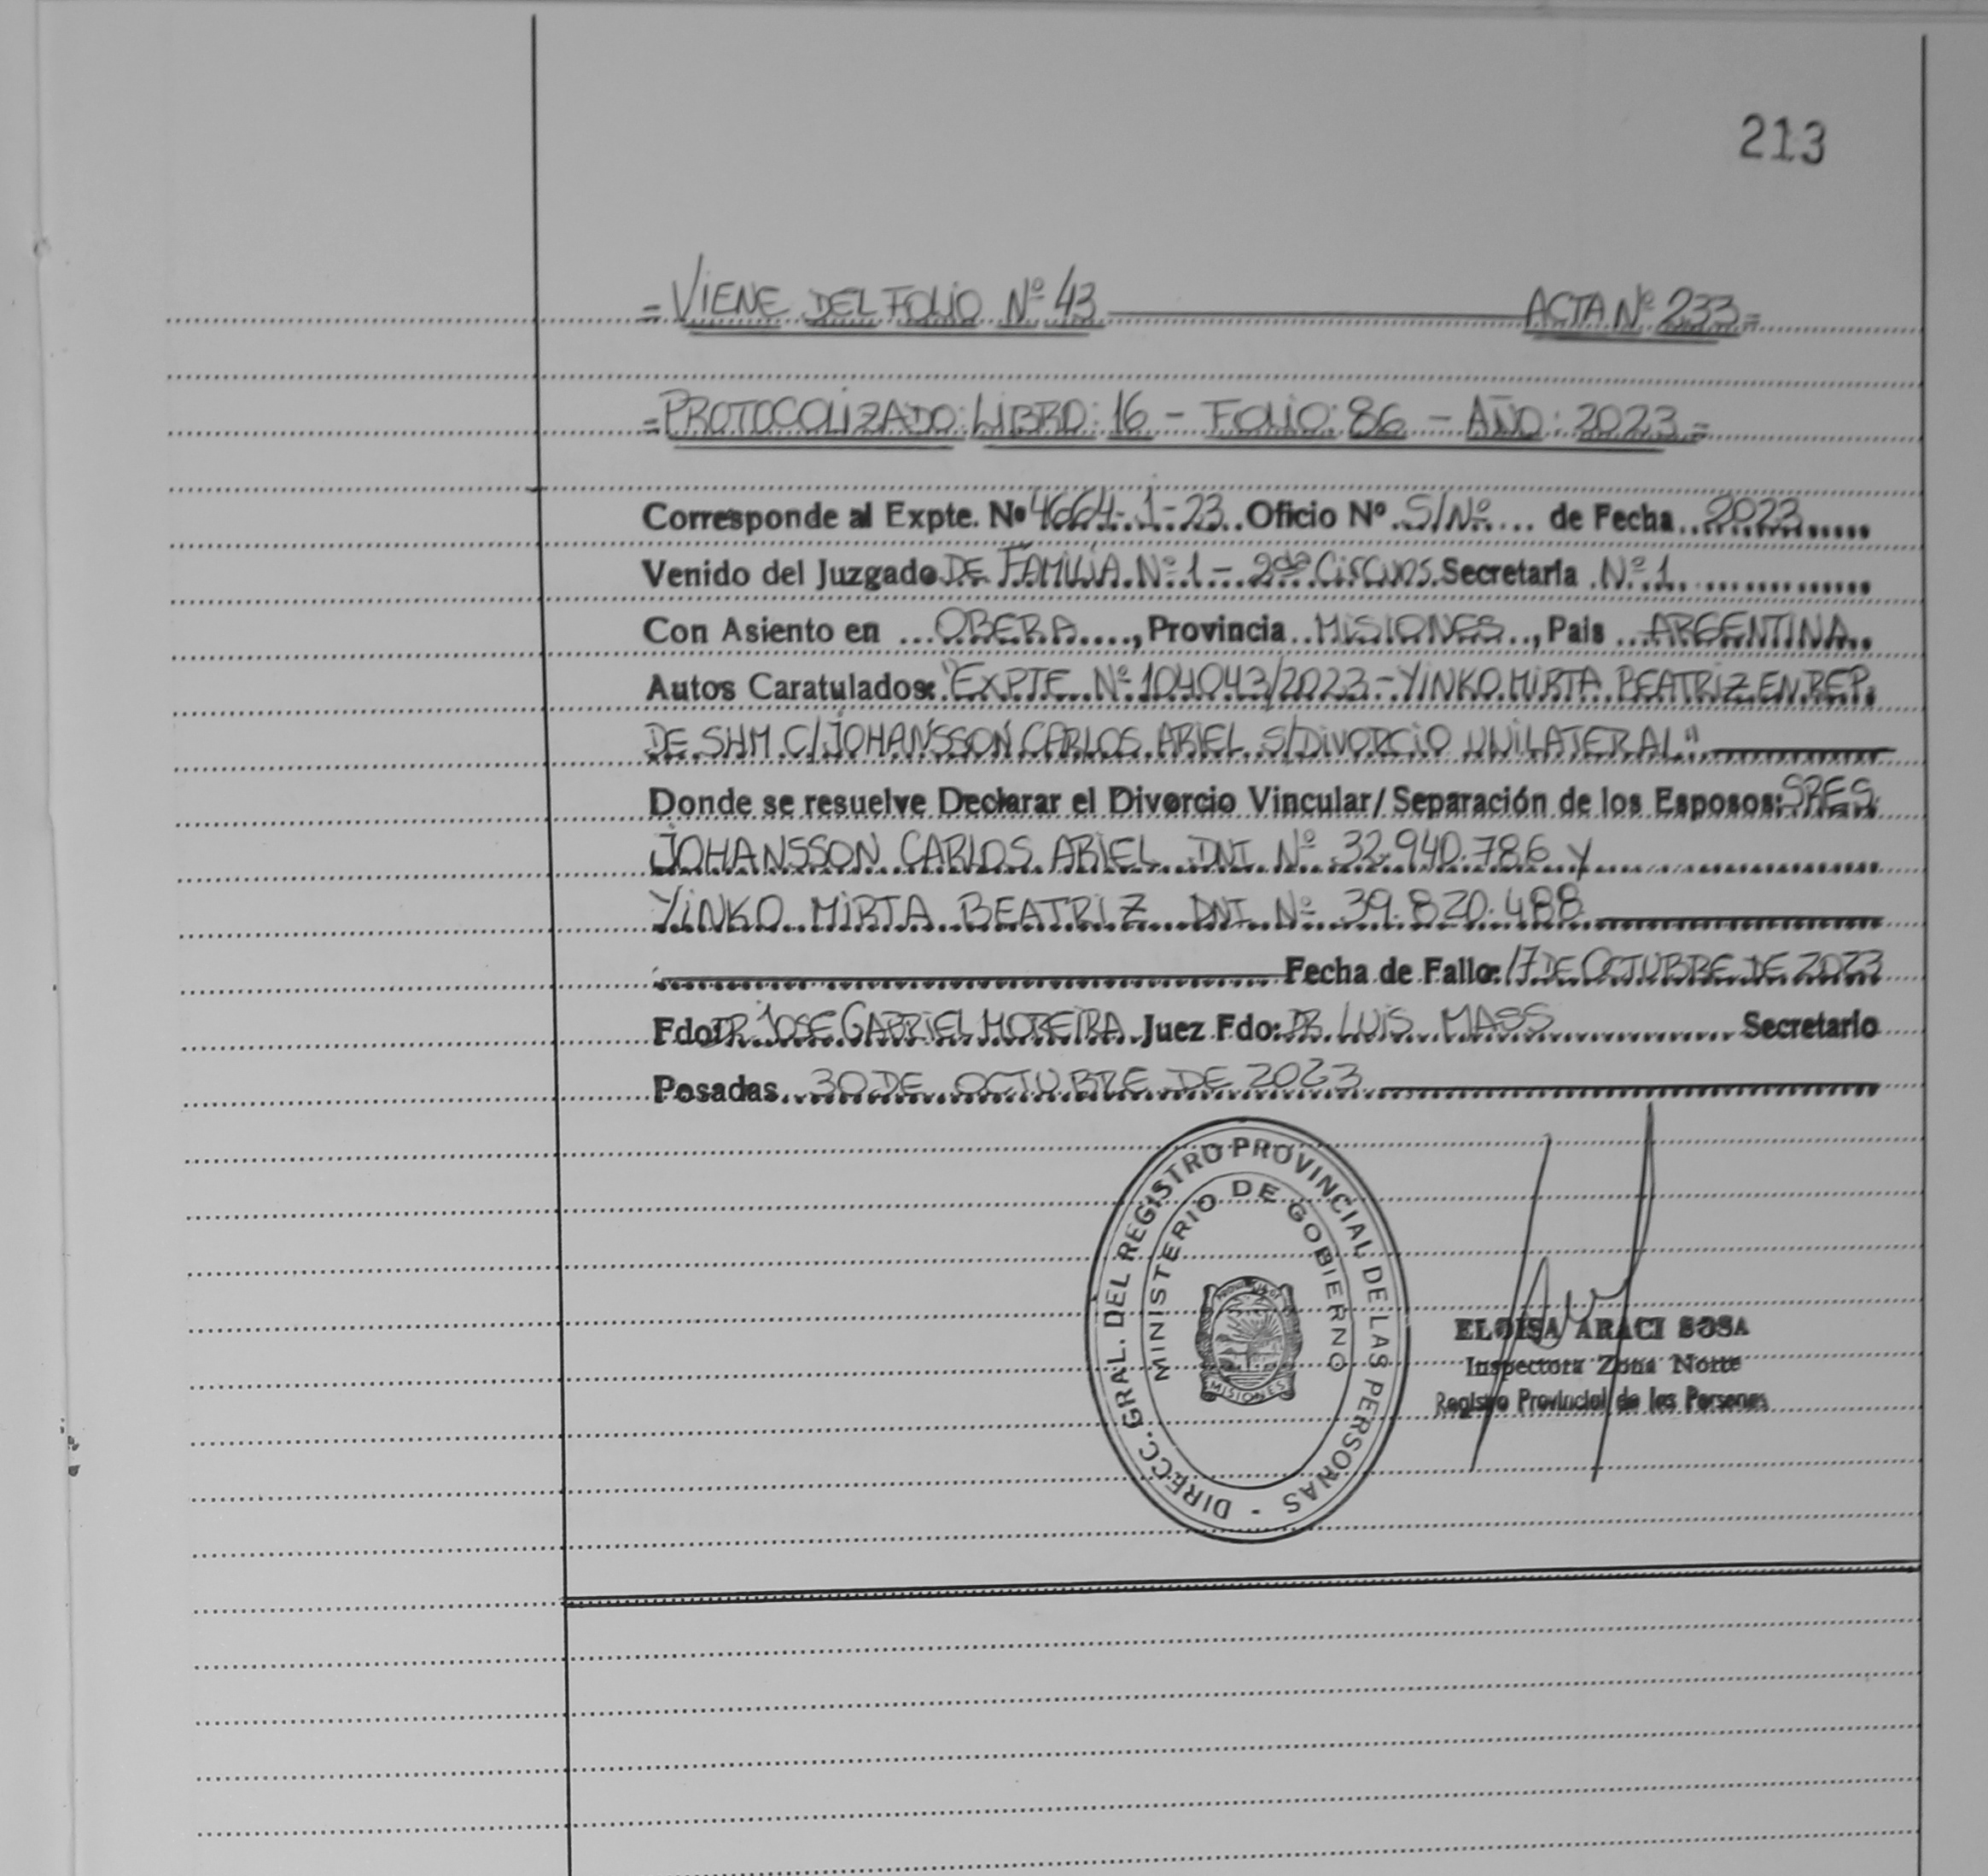 213
= VIENE DEL FOLIO Nº 43 ACTA Nº 233 =
= PROTOCOLIZADO: LIBRO: 16 - FOLIO: 86 - AÑO: 2023 =
Corresponde al Expte. Nº 4664-1-23 Oficio Nº S/Nº de Fecha 2023
Venido del Juzgado DE FAMILIA Nº 1 - 2da Circuns. Secretaría Nº 1
Con Asiento en OBERA, Provincia MISIONES, Pais ARGENTINA
Autos Caratulados: "EXPTE Nº 104043/2023 - YINKO MIRTA BEATRIZ EN REP.
DE SHM C/ JOHANSSON CARLOS ARIEL S/ DIVORCIO UNILATERAL"
Donde se resuelve Declarar el Divorcio Vincular/ Separación de los Esposos: SRES
JOHANSSON CARLOS ARIEL DNI Nº 32.940.786 y
YINKO MIRTA BEATRIZ DNI Nº 39.820.488
Fecha de Fallo: 17 DE OCTUBRE DE 2023
Fdo: DR JOSE GABRIEL MOREIRA Juez Fdo: DR. LUIS MASS Secretario
Posadas, 30 DE OCTUBRE DE 2023
DIRECC. GRAL. DEL REGISTRO PROVINCIAL DE LAS PERSONAS -
MINISTERIO DE GOBIERNO
MISIONES
ELOISA ARACI SOSA
Inspectora Zona Norte
Registro Provincial de las Personas